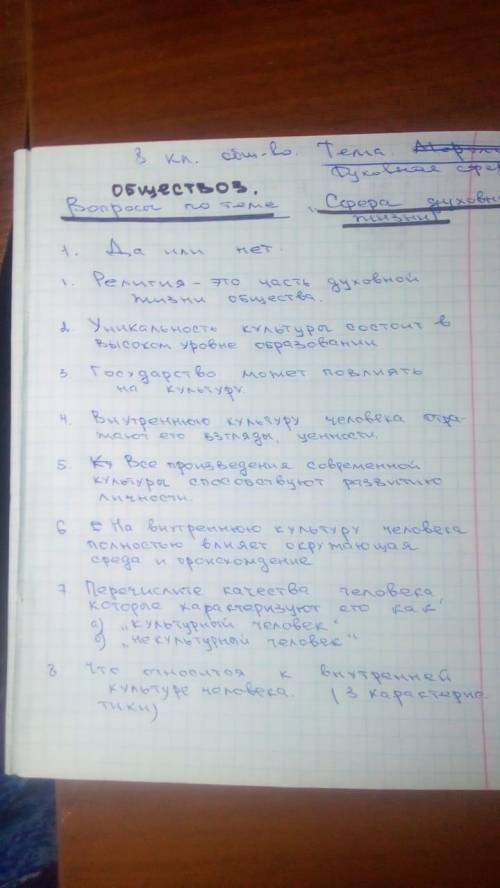 8 кл. общ-во. Тема.
Духовная сфер
ОБЩЕСТВОЗ.
Вопросы по теме „Сфера духовн
жизни"
1. Да или нет.
1. Религия - это часть духовной
жизни общества.
2. Уникальность культуры состоит в
высоком уровне образовании
3. Государство может повлиять
на культуру.
4. Внутреннюю культуру человека отра-
жают его взгляды, ценности.
5. Все произведения современной
культуры способствуют развитию
личности.
6 На внутреннюю культуру человека
полностью влияет окружающая
среда и происхождение
7. Перечислите качества человека,
которые характеризуют его как
а) „культурный человек"
б) „некультурный человек"
8 Что относится к внутренней
культуре человека. (3 характерис
тики)